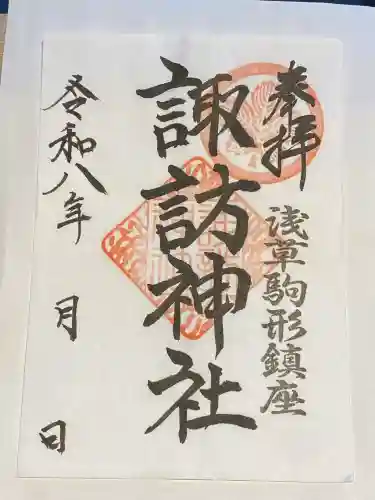 奉拝
浅草駒形鎮座
諏訪神社
令和八年 月 日